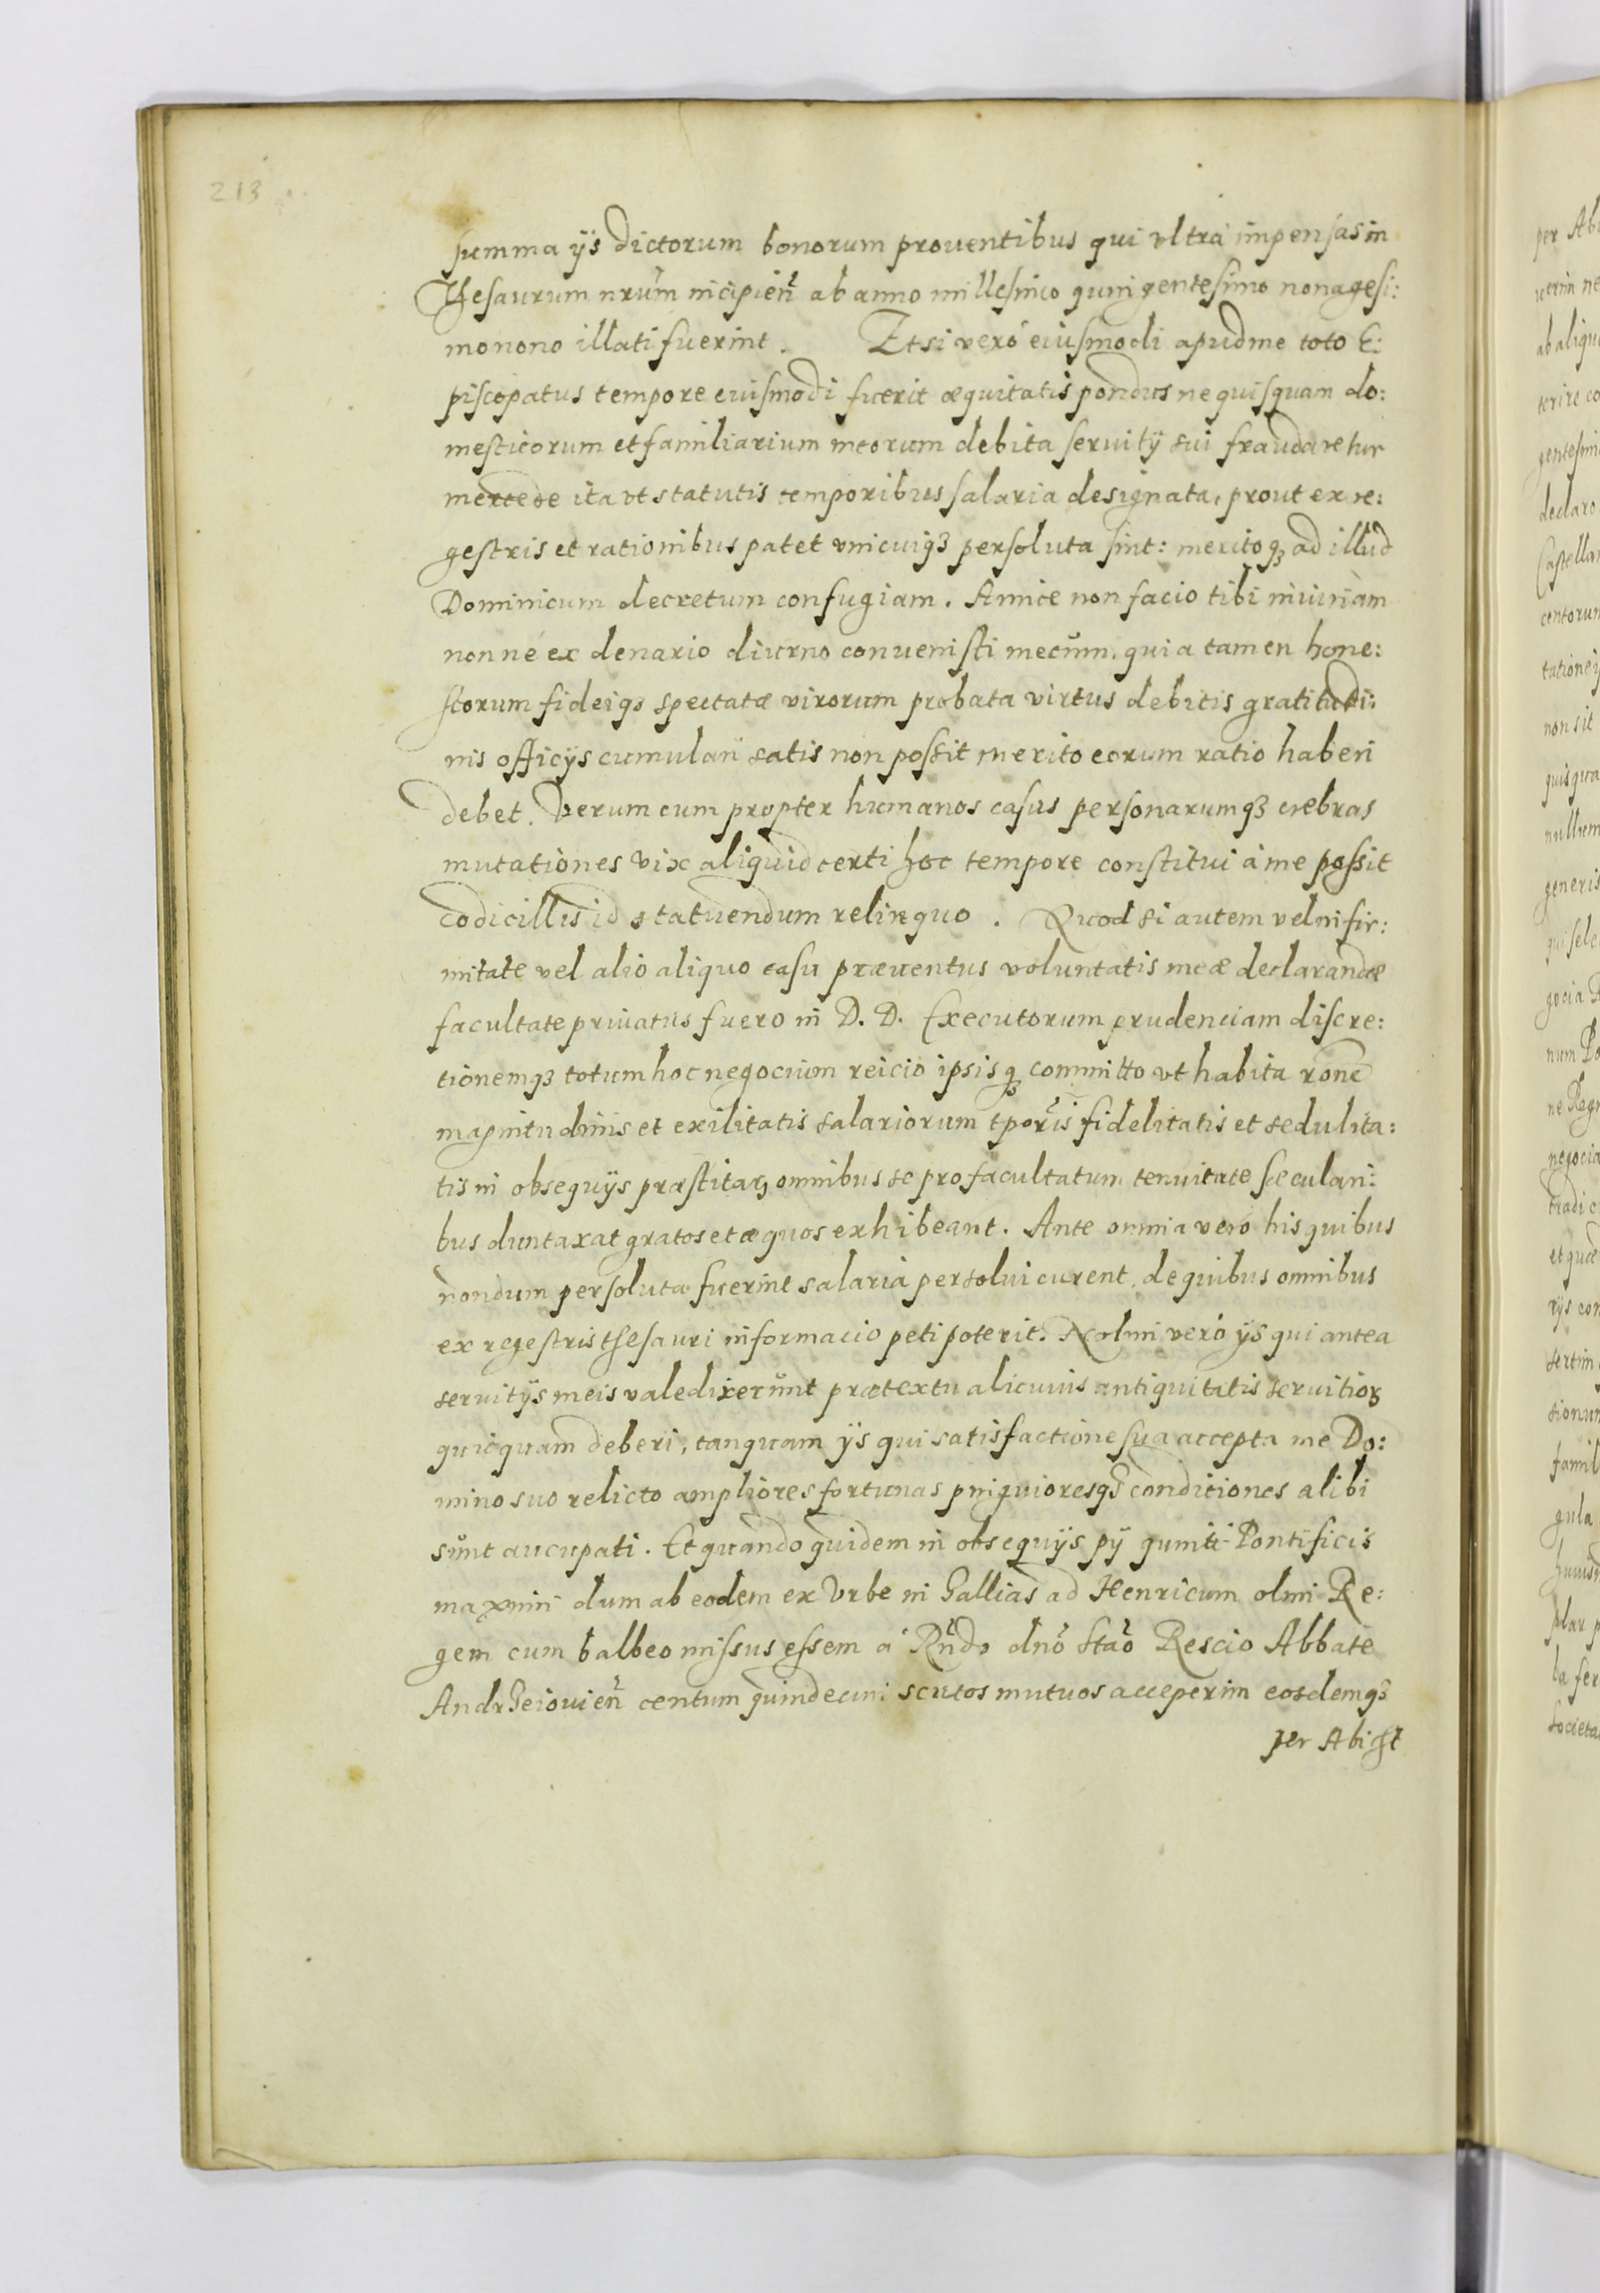 213
summa ijs dictorum bonorum prouentibus qui vltrà impensas in
Thesaurum nr̃um incipieñ ab anno millesimo quingentesimo nonagesi:
mo nono illati fuerint. Etsi verò eiusmodi apud me toto E:
piscopatus tempore eiusmodi fuerit æquitatis pondus ne quisquam do:
mesticorum et familiarium meorum debita seruitij sui fraudaretur
mercede ita vt statutis temporibus salaria designata, prout ex re:
gestris et rationibus patet vnicuiqꝫ persoluta sint: meritoqꝫ ad illud
Dominicum decretum confugiam. Amice non facio tibi iniuriam
nonne ex denario diurno conuenisti mecum. quia tamen hone:
storum fideiqꝫ spectatæ virorum probata virtus debitis gratitudi:
nis officijs cumulari satis non possit merito eorum ratio haberi
debet. Verum cum propter humanos casus personarumqꝫ crebras
mutationes vix aliquid certi hoc tempore constitui à me possit
codicillis id statuendum relinquo. Quod si autem vel infir:
mitate vel alio aliquo casu præuentus voluntatis meæ declarandæ
facultate priuatus fuero in D. D. Executorum prudenciam discre:
tionemqꝫ totum hoc negocium reicio ipsisqꝫ committo vt habita rõne
magnitudinis et exilitatis salariorum tp̃oris fidelitatis et sedulita:
tis in obsequijs præstitaꝝ omnibus se pro facultatum tenuitate sæculari:
bus duntaxat gratos et æquos exhibeant. Ante omnia verò his quibus
nondum persoluta fuerint salaria persolui curent. de quibus omnibus
ex regestris thesauri informacio peti poterit. Nolim verò ijs qui antea
seruitijs meis valedixerunt prætextu alicuius antiquitatis seruitioꝝ
quicquam deberi, tanquam ijs qui satisfactione sua accepta me Do:
mino suo relicto ampliores fortunas pniquioresqꝫ conditiones alibi
sunt aucupati. Et quando quidem in obsequijs pij quinti Pontificis
maximi dum ab eodem ex Vrbe in Gallias ad Henricum olim Re:
gem cum balbeo missus essem à Rñdo dño Stão Rescio Abbate
Andrzeiouieñ centum quindecim scutos mutuos acceperim eosdemqꝫ
per Abist